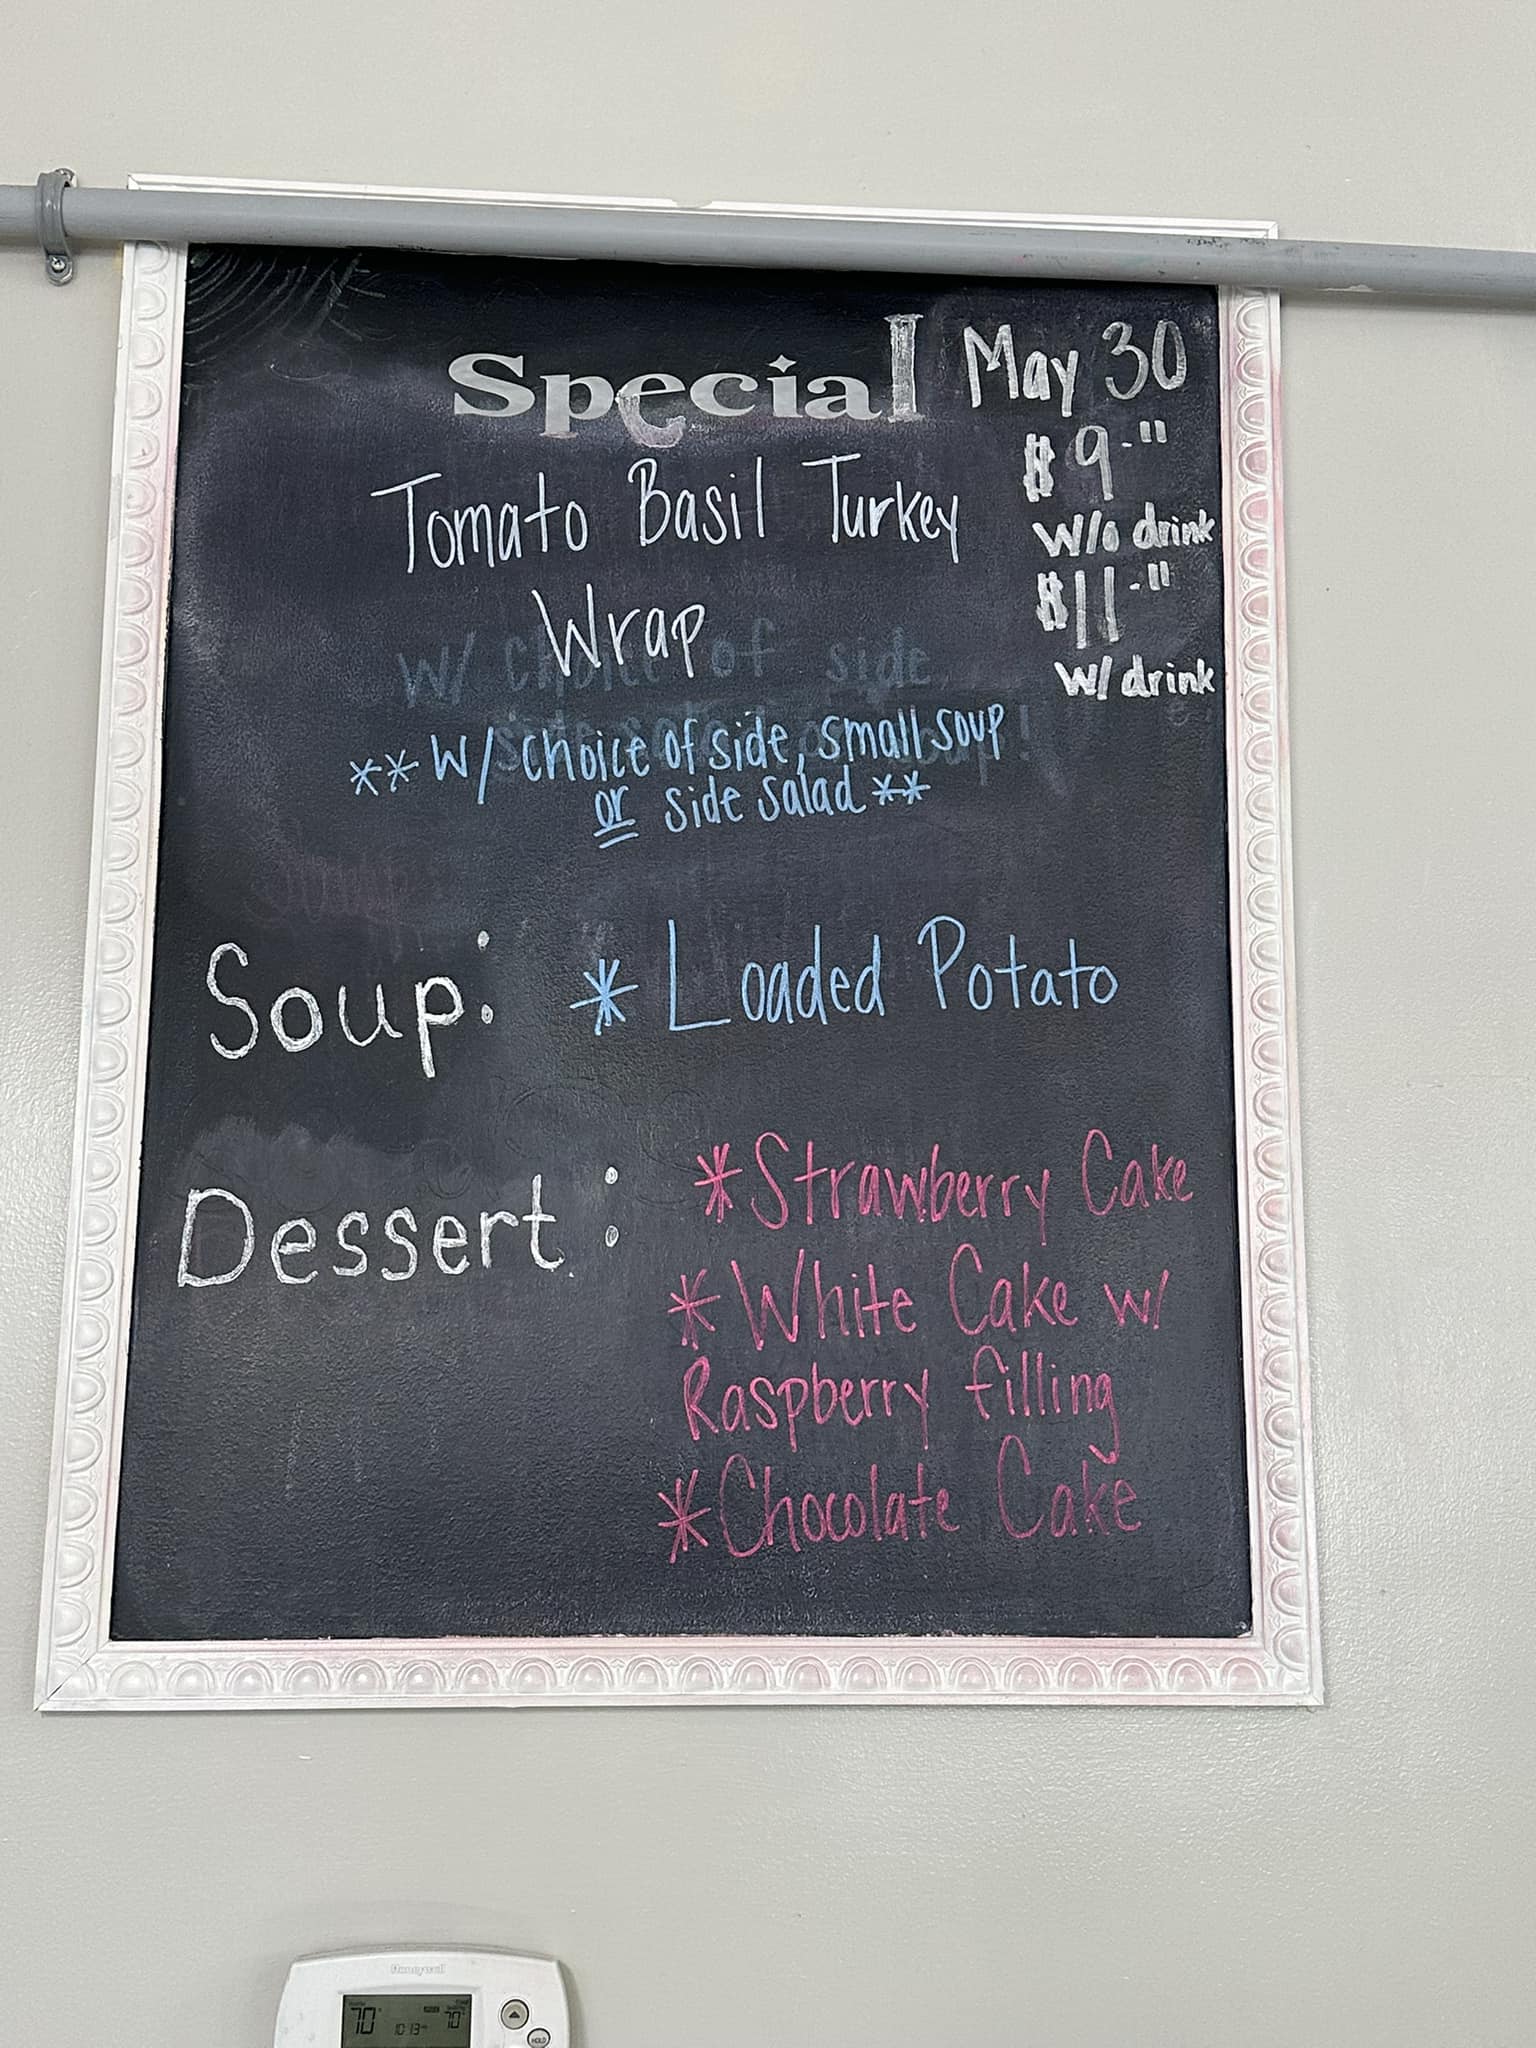 Special
May 30
$9.''
w/o drink
$11.''
w/ drink
Tomato Basil Turkey
Wrap
w/ choice of side
**w/ choice of side, small soup
or side salad**
Soup: * Loaded Potato
Dessert: *Strawberry Cake
*White Cake w/
Raspberry filling
*Chocolate Cake
Honeywell
70° 10:13 70°
HOLD